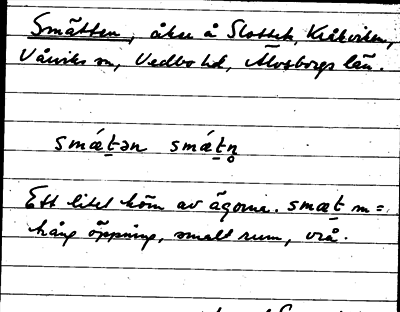 Smätten, åker å Slottet, Kråkviken,
Vårviks sn, Vedbo hd, Älvsborgs län.
smǽt̠ən smǽt̠n̥
Ett litet hörn av ägorna. smæt̠ m =
trång öppning, smalt rum, vrå.